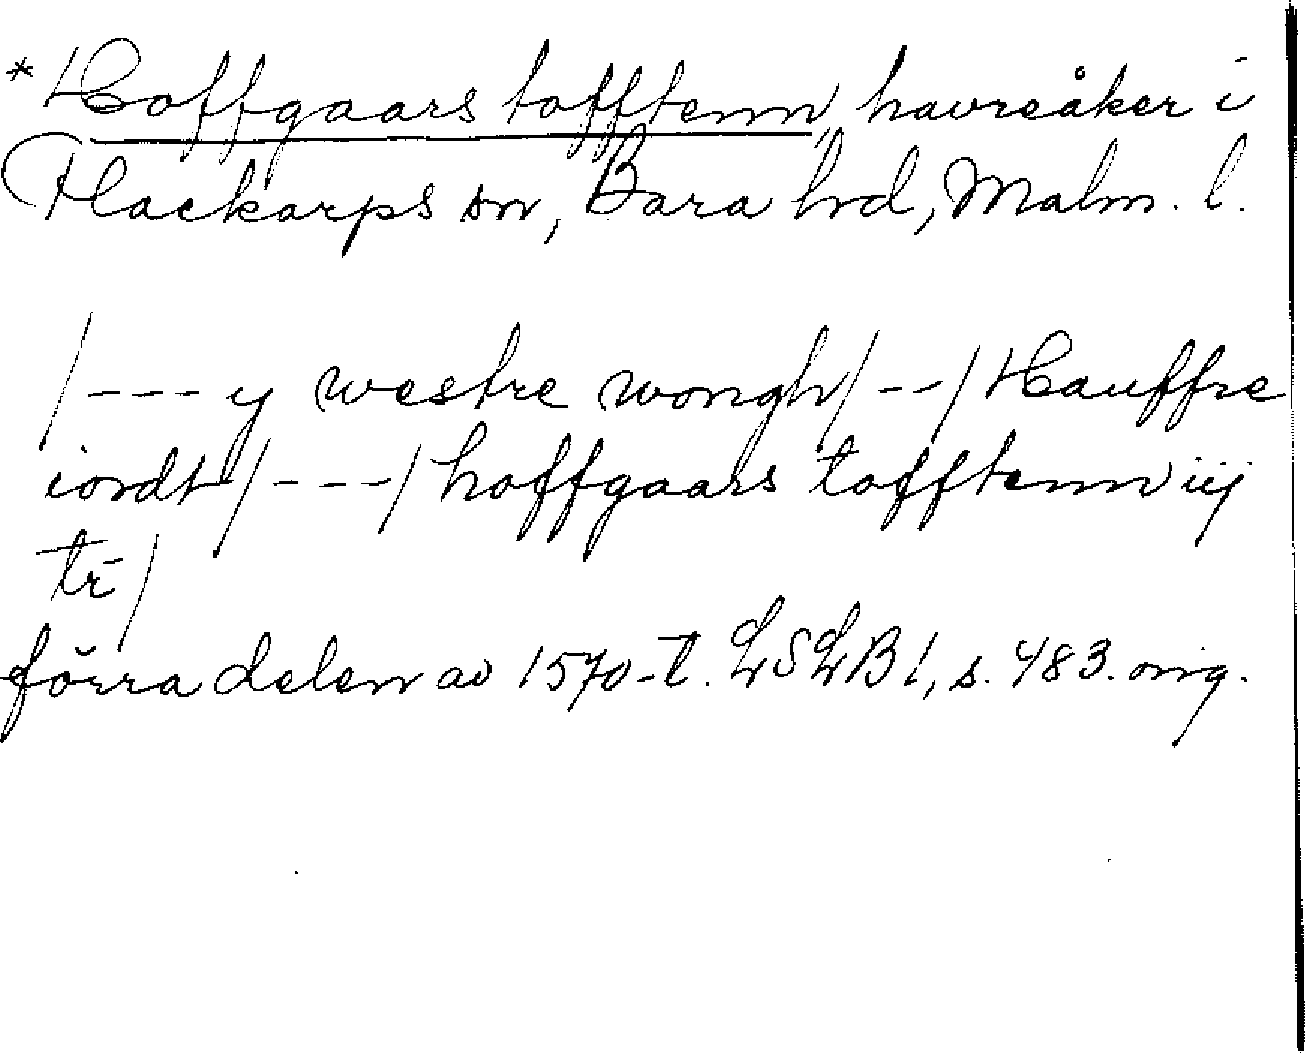 *Hoffgaars tofftenn, havreåker i
Flackarps sn, Bara hd, Malm. l.
/---y westre wongh/--/Hauffre
iordt/---/hoffgaars tofftenn iij
tr/
förra delen av 1570-t. LSLB 1, s. 483. orig.